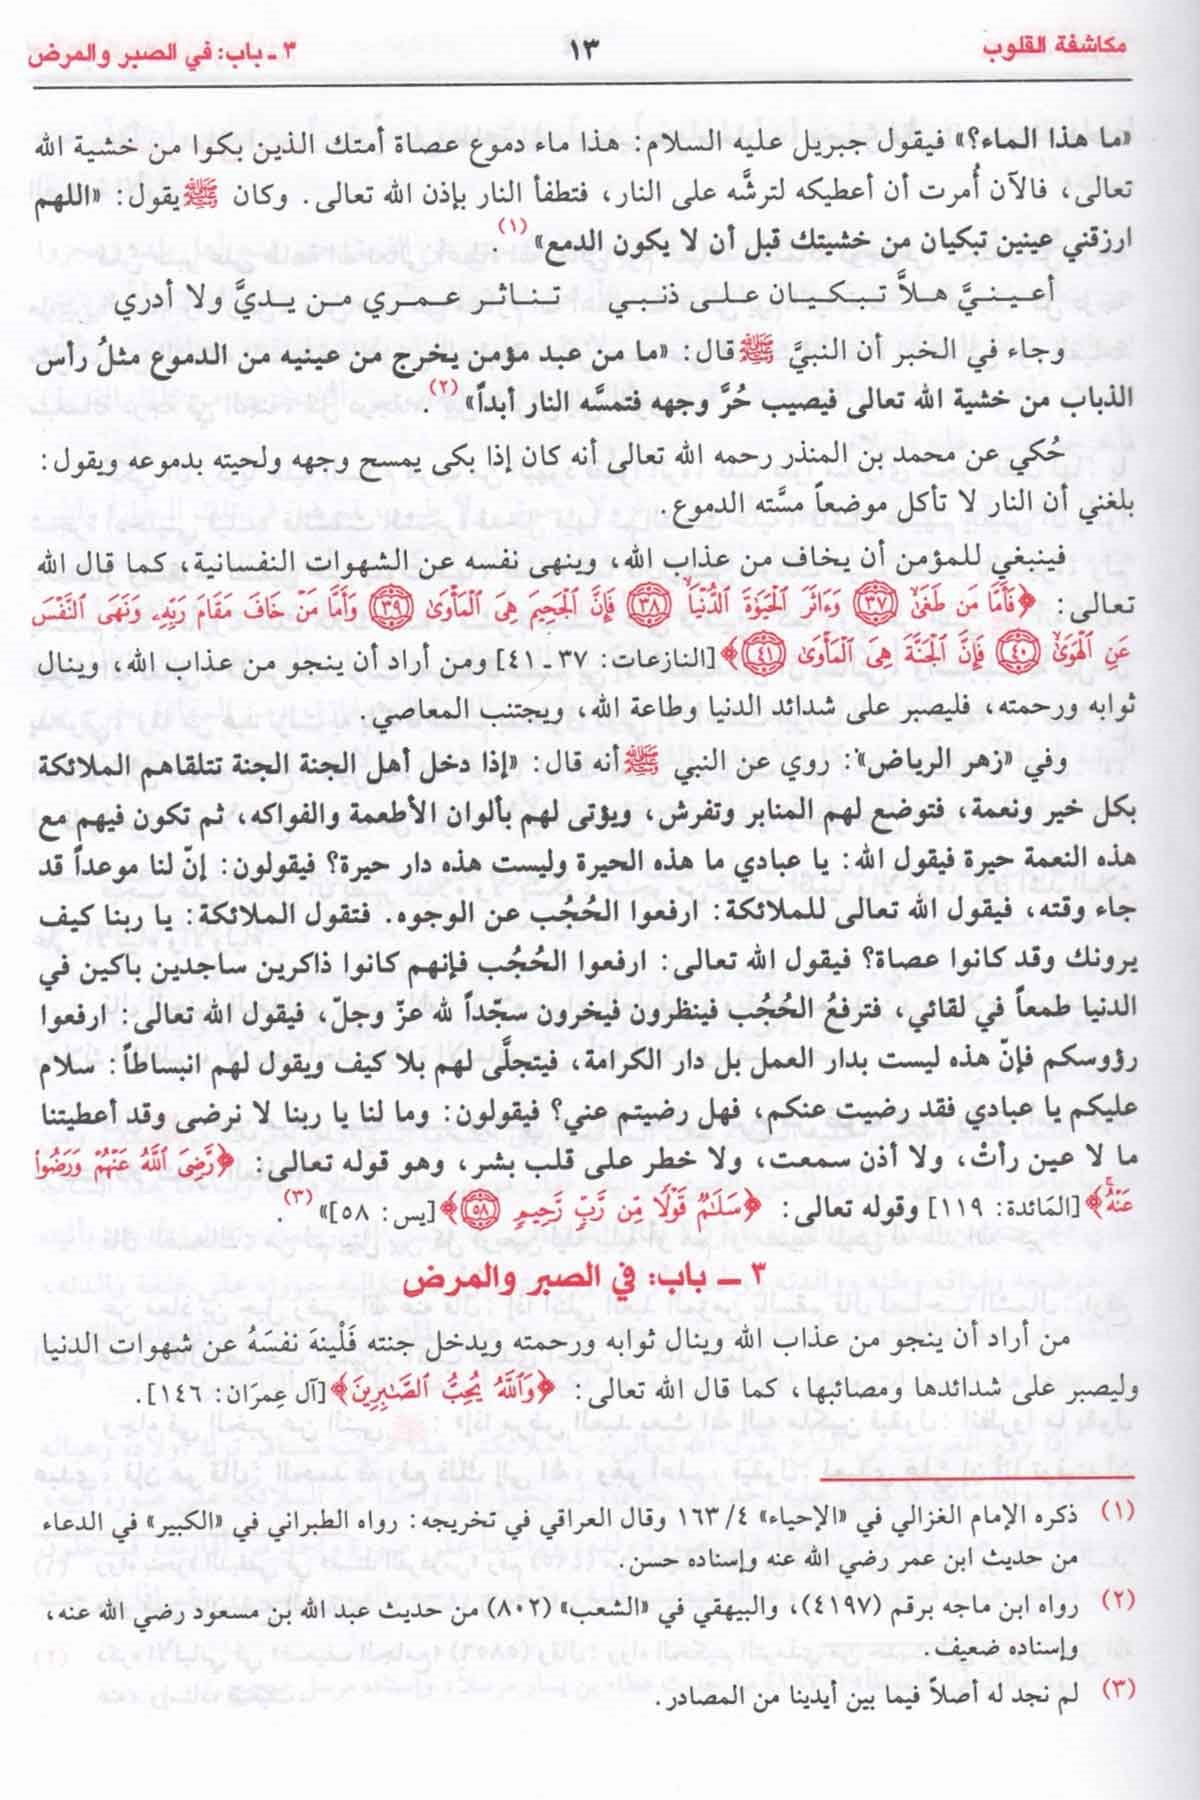 مكاشفة القلوب ١٣ ٣ ـ باب: في الصبر والمرض
«ما هذا الماء؟» فيقول جبريل عليه السلام: هذا ماء دموع عصاة أمتك الذين بكوا من خشية الله
تعالى، فالآن أُمرت أن أعطيكه لترشَّه على النار، فتطفأ النار بإذن الله تعالى. وكان ﷺ يقول: «اللهم
ارزقني عينين تبكيان من خشيتك قبل أن لا يكون الدمع»(١).
أعينيَّ هلاَّ تبكيان على ذنبي تناثر عمري من يديَّ ولا أدري
وجاء في الخبر أن النبيَّ ﷺ قال: «ما من عبد مؤمن يخرج من عينيه من الدموع مثلُ رأس
الذباب من خشية الله تعالى فيصيب حُرَّ وجهه فتمسَّه النار أبداً»(٢).
حُكي عن محمد بن المنذر رحمه الله تعالى أنه كان إذا بكى يمسح وجهه ولحيته بدموعه ويقول:
بلغني أن النار لا تأكل موضعاً مسَّته الدموع.
فينبغي للمؤمن أن يخاف من عذاب الله، وينهى نفسه عن الشهوات النفسانية، كما قال الله
تعالى: ﴿فَأَمَّا مَن طَغَىٰ ﴿٣٧﴾ وَءَاثَرَ الْحَيَوٰةَ الدُّنْيَا ﴿٣٨﴾ فَإِنَّ الْجَحِيمَ هِىَ الْمَأْوَىٰ ﴿٣٩﴾ وَأَمَّا مَنْ خَافَ مَقَامَ رَبِّهِۦ وَنَهَى النَّفْسَ
عَنِ الْهَوَىٰ ﴿٤٠﴾ فَإِنَّ الْجَنَّةَ هِىَ الْمَأْوَىٰ ﴿٤١﴾﴾ [النازعات: ٣٧ ـ ٤١] ومن أراد أن ينجو من عذاب الله، وينال
ثوابه ورحمته، فليصبر على شدائد الدنيا وطاعة الله، ويجتنب المعاصي.
وفي «زهر الرياض»: روي عن النبي ﷺ أنه قال: «إذا دخل أهل الجنة الجنة تتلقاهم الملائكة
بكل خير ونعمة، فتوضع لهم المنابر وتفرش، ويؤتى لهم بألوان الأطعمة والفواكه، ثم تكون فيهم مع
هذه النعمة حيرة فيقول الله: يا عبادي ما هذه الحيرة وليست هذه دار حيرة؟ فيقولون: إنّ لنا موعداً قد
جاء وقته، فيقول الله تعالى للملائكة: ارفعوا الحُجُب عن الوجوه. فتقول الملائكة: يا ربنا كيف
يرونك وقد كانوا عصاة؟ فيقول الله تعالى: ارفعوا الحُجُب فإنهم كانوا ذاكرين ساجدين باكين في
الدنيا طمعاً في لقائي، فترفعُ الحُجُب فينظرون فيخرون سجّداً لله عزّ وجلّ، فيقول الله تعالى: ارفعوا
رؤوسكم فإنّ هذه ليست بدار العمل بل دار الكرامة، فيتجلَّى لهم بلا كيف ويقول لهم انبساطاً: سلام
عليكم يا عبادي فقد رضيت عنكم، فهل رضيتم عني؟ فيقولون: وما لنا يا ربنا لا نرضى وقد أعطيتنا
ما لا عين رأتْ، ولا أذن سمعت، ولا خطر على قلب بشر، وهو قوله تعالى: ﴿رَّضِىَ اللَّهُ عَنْهُمْ وَرَضُوا۟
عَنْهُ﴾ [المَائدة: ١١٩] وقوله تعالى: ﴿سَلَٰمٌ قَوْلًا مِّن رَّبٍّ رَّحِيمٍ ﴿٥٨﴾﴾ [يس: ٥٨]»(٣).
٣ ـ باب: في الصبر والمرض
من أراد أن ينجو من عذاب الله وينال ثوابه ورحمته ويدخل جنته فَلْينهَ نفسَهُ عن شهوات الدنيا
وليصبر على شدائدها ومصائبها، كما قال الله تعالى: ﴿وَاللَّهُ يُحِبُّ الصَّٰبِرِينَ﴾ [آل عِمرَان: ١٤٦].
(١) ذكره الإمام الغزالي في «الإحياء» ٤/ ١٦٣ وقال العراقي في تخريجه: رواه الطبراني في «الكبير» في الدعاء
من حديث ابن عمر رضي الله عنه وإسناده حسن.
(٢) رواه ابن ماجه برقم (٤١٩٧)، والبيهقي في «الشعب» (٨٠٢) من حديث عبد الله بن مسعود رضي الله عنه،
وإسناده ضعيف.
(٣) لم نجد له أصلاً فيما بين أيدينا من المصادر.